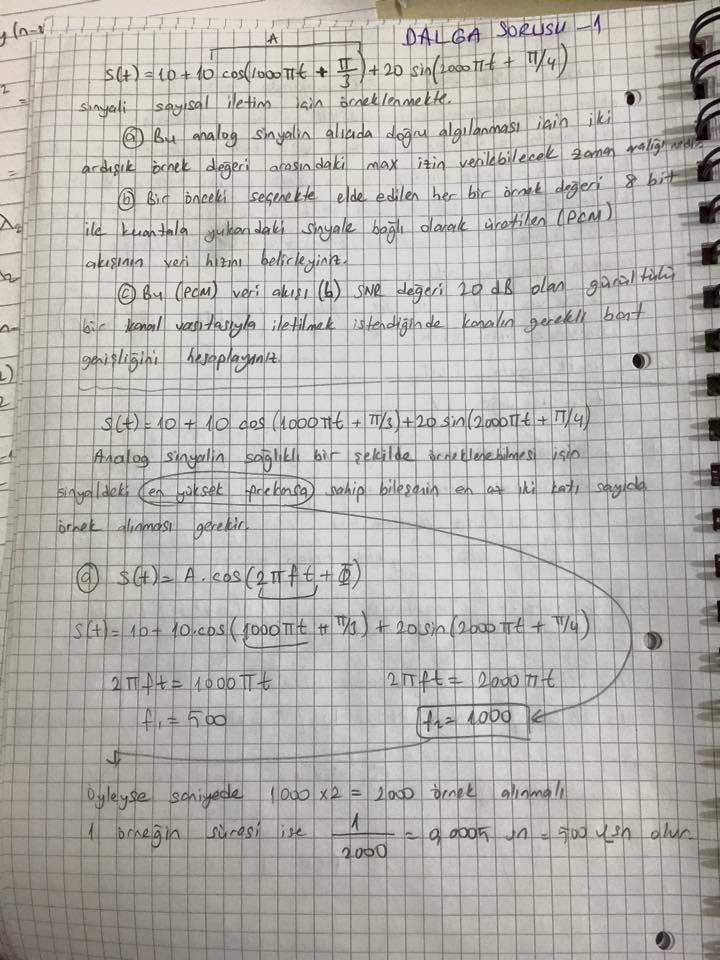 DALGA SORUSU -1
A
S(t) = 10 + 10 cos(1000πt + π/3) + 20 sin(2000πt + π/4)
sinyali sayısal iletim için örneklenmekte.
ⓐ Bu analog sinyalin alıcıda doğru algılanması için iki
ardışık örnek değeri arasındaki max izin verilebilecek zaman aralığı nedir
ⓑ Bir önceki seçenekte elde edilen her bir örnek değeri 8 bit
ile kuantala yukarıdaki sinyale bağlı olarak üretilen (PCM)
akışının veri hızını belirleyiniz.
ⓒ Bu (PCM) veri akışı (b) SNR değeri 20 dB olan gürültülü
bir kanal vasıtasıyla iletilmek istendiğinde kanalın gerekli bant
genişliğini hesaplayınız.
S(t) = 10 + 10 cos (1000πt + π/3) + 20 sin(2000πt + π/4)
Analog sinyalin sağlıklı bir şekilde örneklenebilmesi için
sinyaldeki en yüksek frekansa sahip bileşenin en az iki katı sayıda
örnek alınması gerekir.
ⓐ S(t) = A.cos(2πft + Φ)
S(t) = 10 + 10.cos(1000πt + π/3) + 20 sin(2000πt + π/4)
2πft = 1000πt 2πft = 2000πt
f₁ = 500 f₂ = 1000
Öyleyse saniyede 1000 x 2 = 2000 örnek alınmalı
1 örneğin süresi ise 1/2000 = 0,0005 sn = 500 μsn olur.